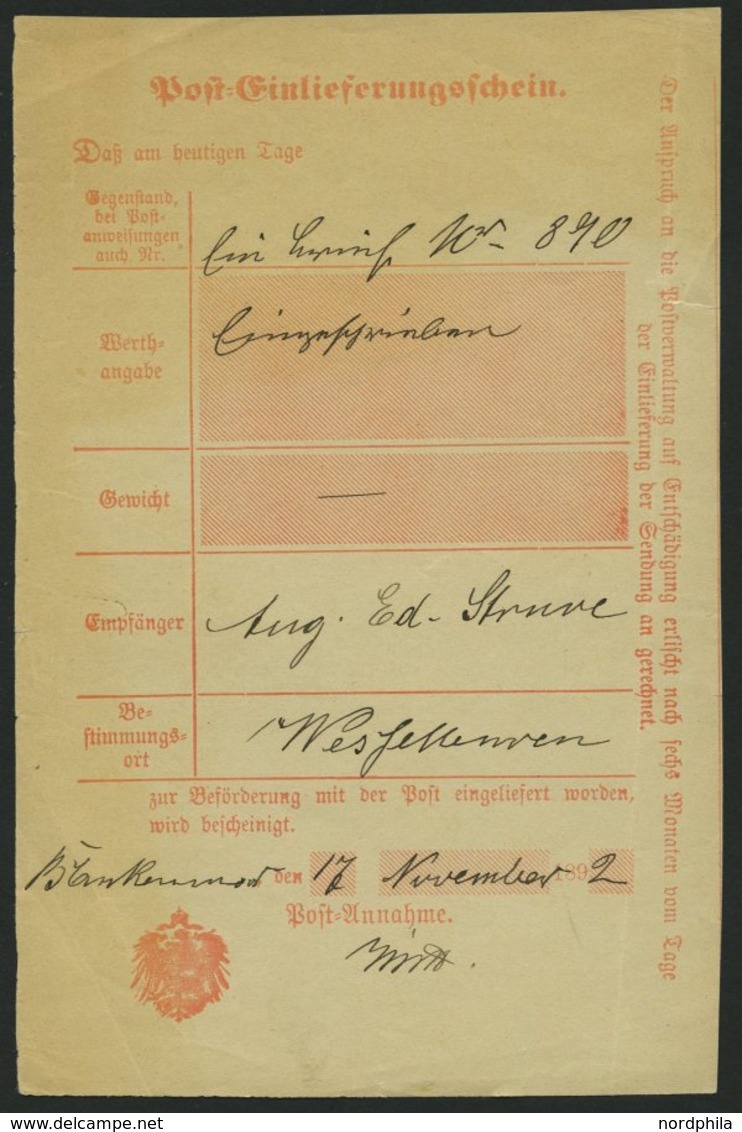 Post-Einlieferungsschein.
Daß am heutigen Tage
Gegenstand,
bei Post-
anweisungen
auch Nr.
Ein Nr 890
Werth-
angabe
Eingeschrieben
Gewicht
—
Empfänger
Aug. Ed. Struve
Be-
stimmungs-
ort
Wesselburen
zur Beförderung mit der Post eingeliefert worden,
wird bescheinigt.
den 17 November 1892
Post-Annahme.
Der Anspruch an die Postverwaltung auf Entschädigung erlischt nach sechs Monaten vom Tage
der Einlieferung der Sendung an gerechnet.
nordphila